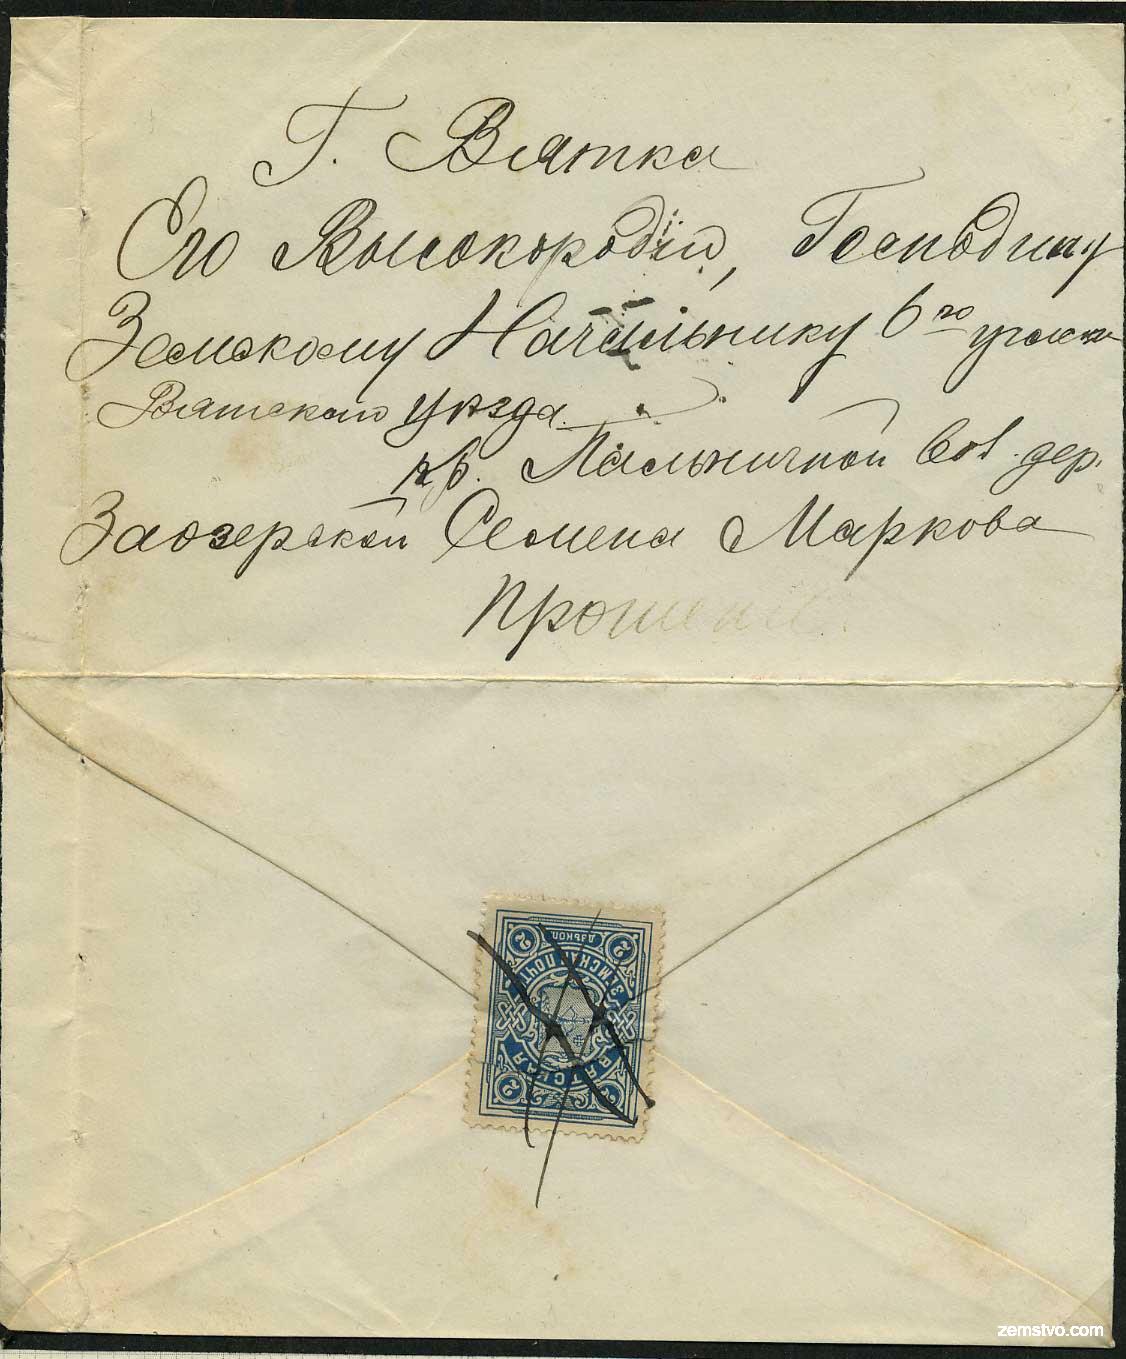 Г. Вятка
Его Высокородiю, Господину
Земскому Начальнику 6го участка
Вятскаго уѣзда
кр. Пальничной Вол. дер.
Заозерской Семена Маркова
Прошение
2 ДВѢ КОП 2
ЗЕМСКАЯ ПОЧТА
ВЯТСКАЯ
2 2
zemstvo.com